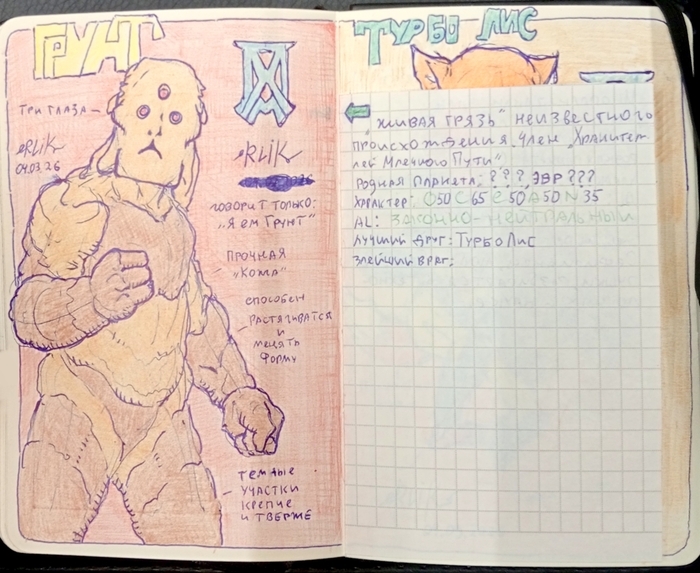 ГРУНТ
ТРИ ГЛАЗА
eRLiK
04.03.26
eRLiK
ГОВОРИТ ТОЛЬКО:
„Я ЕМ ГРУНТ"
ПРОЧНАЯ
„КОЖА"
СПОСОБЕН
РАСТЯГИВАТСЯ
И
МЕНЯТЬ
ФОРМУ
ТЕМНЫЕ
УЧАСТКИ
КРЕПЧЕ
И ТВЕРЖЕ
ТУРБО ЛИС
„ЖИВАЯ ГРЯЗЬ" НЕИЗВЕСТНОГО
ПРОИСХОЖДЕНИЯ. ЧЛЕН „ХРАНИТЕ
ЛЕЙ МЛЕЧНОГО ПУТИ"
РОДНАЯ ПЛАНЕТА: ??? ЭВР ???
ХАРАКТЕР: О50 С65 Е50 А50 N35
AL: ЗАКОННО-НЕЙТРАЛЬНЫЙ
ЛУЧШИЙ ДРУГ: ТУРБО ЛИС
ЗЛЕЙШИЙ ВРАГ: